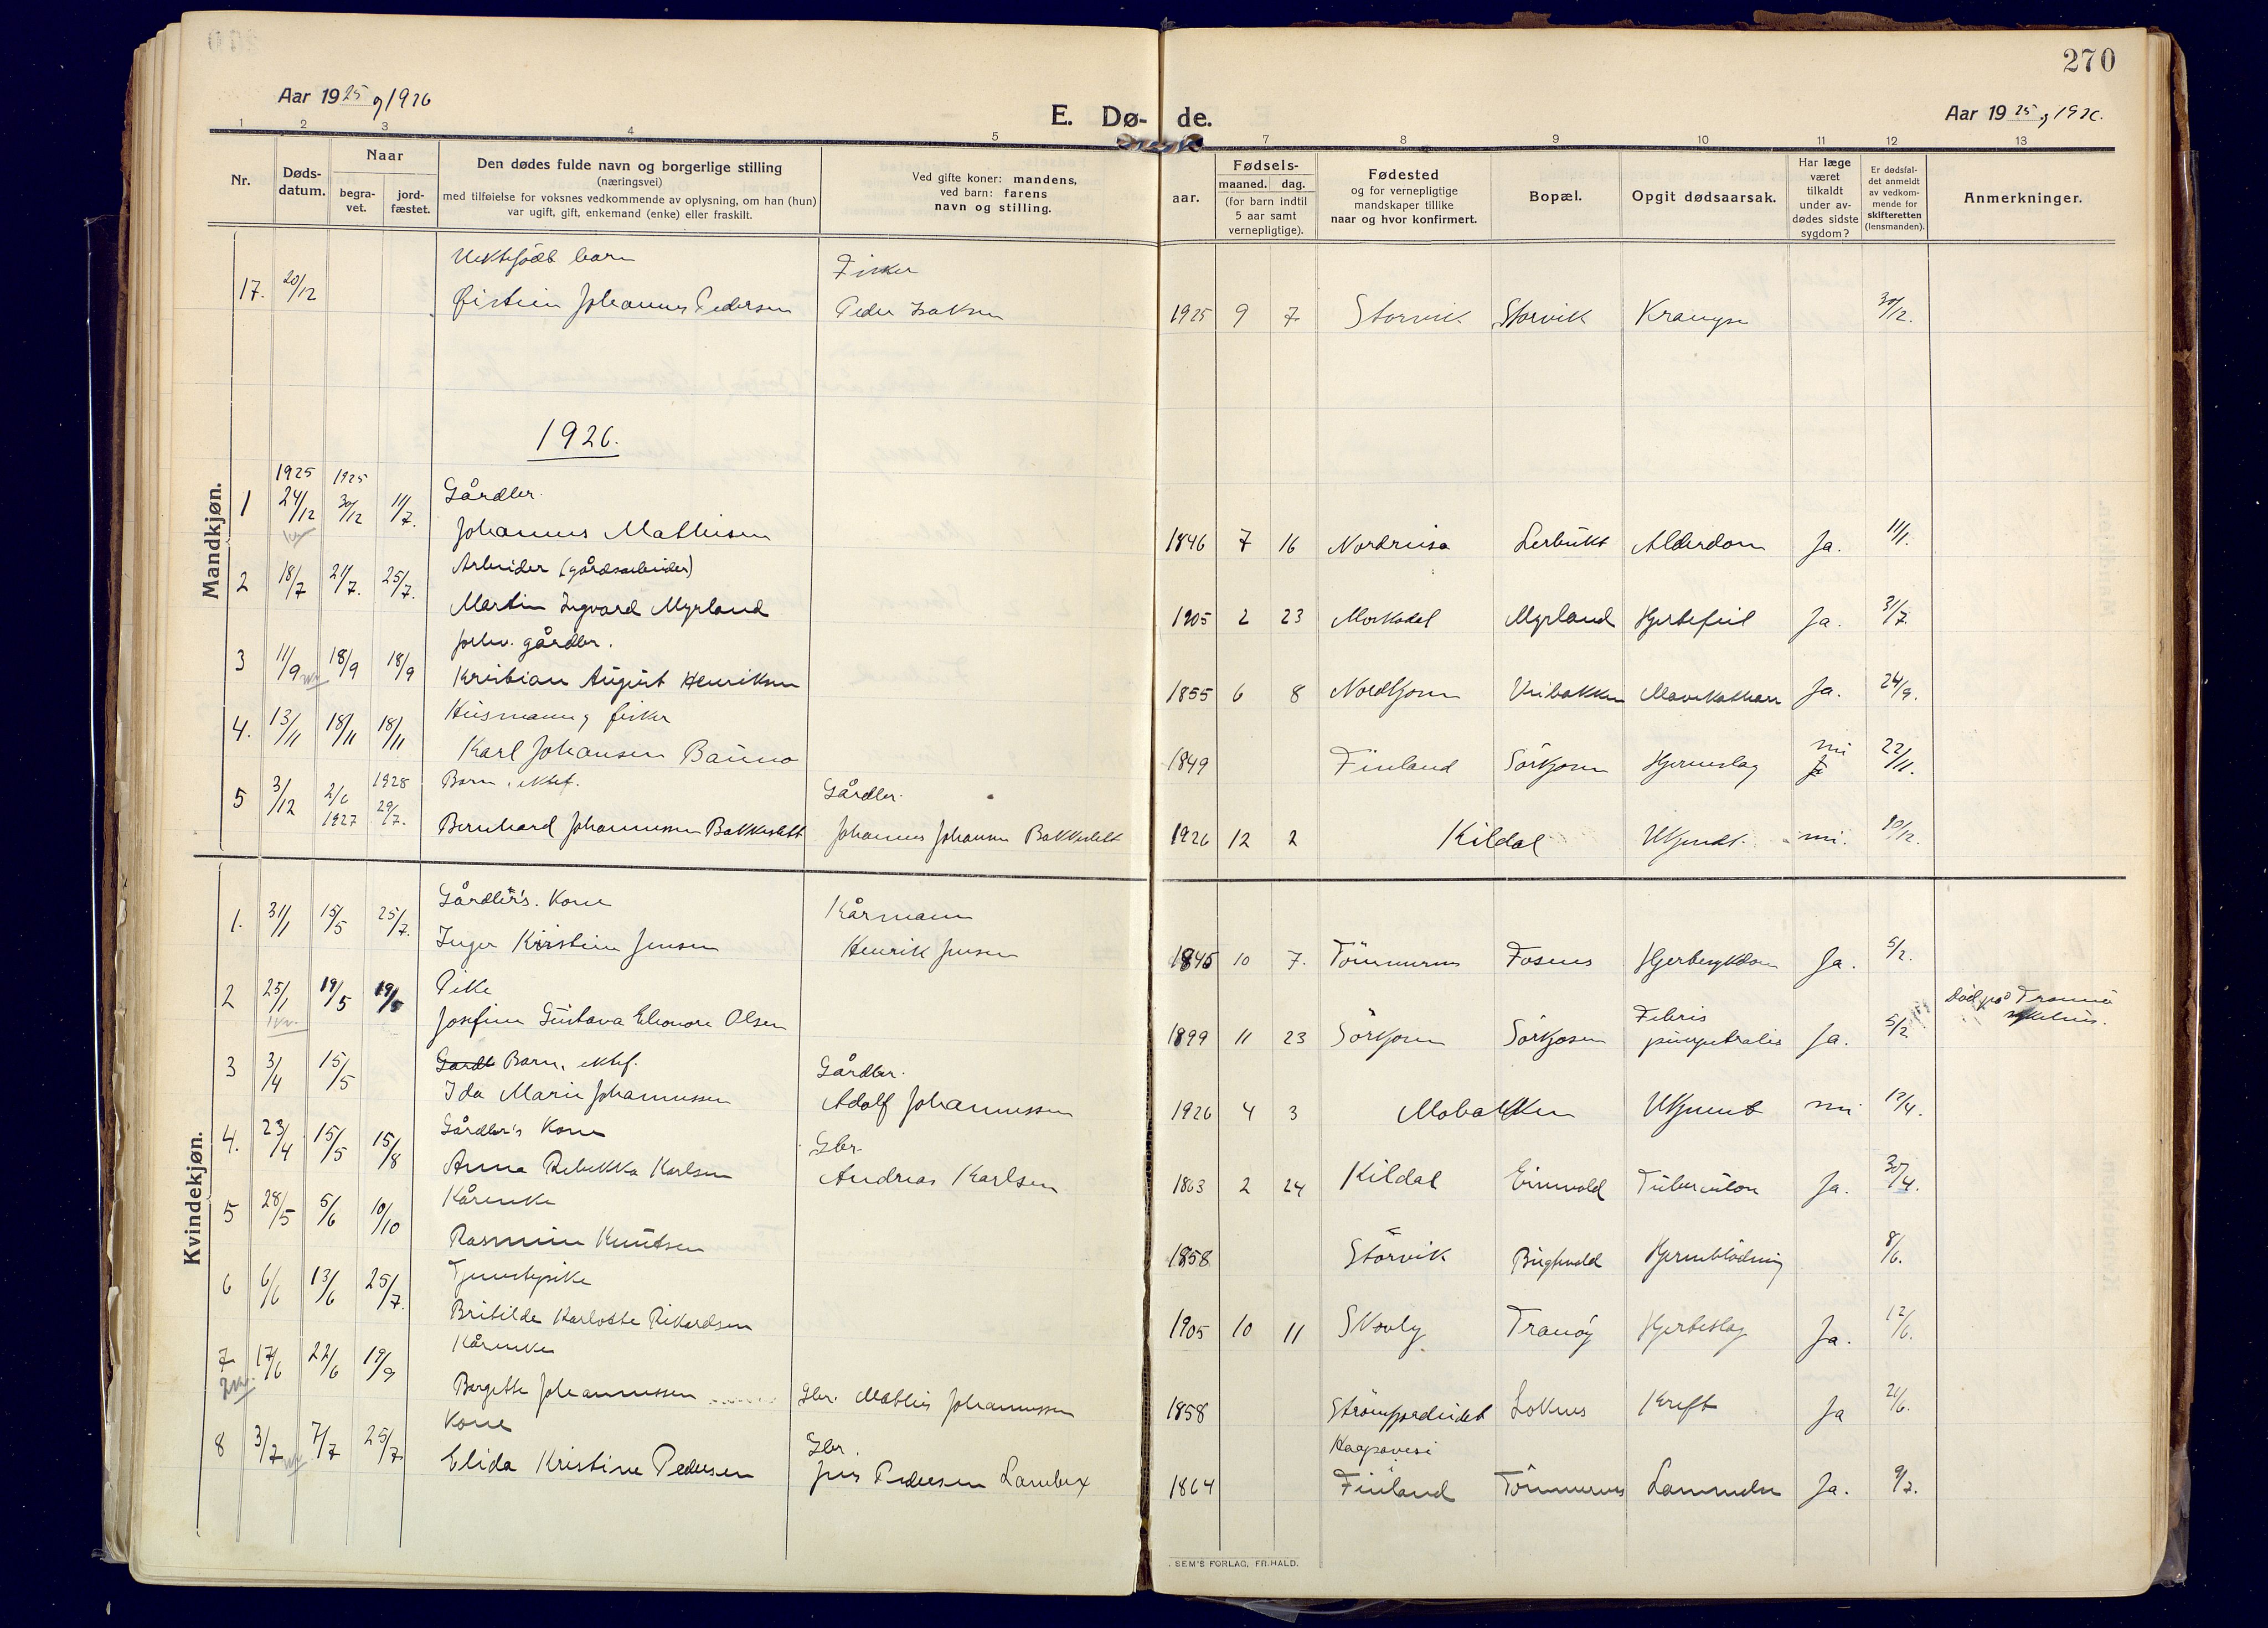 270
Aar 1925 og 1926
E. Dø- de.
Aar 1925 og 1926.
1 2 3 4 5 7 8 9 10 11 12 13
Nr.
Døds-
datum.
Naar
begra-
vet.
jord-
fæstet.
Den dødes fulde navn og borgerlige stilling
(næringsvei)
med tilføielse for voksnes vedkommende av oplysning, om han (hun)
var ugift, gift, enkemand (enke) eller fraskilt.
Ved gifte koner: mandens,
ved barn: farens
navn og stilling.
aar.
Fødsels-
maaned. dag.
(for barn indtil
5 aar samt
vernepligtige).
Fødested
og for vernepligtige
mandskaper tillike
naar og hvor konfirmert.
Bopæl.
Opgit dødsaarsak.
Har læge
været
tilkaldt
under av-
dødes sidste
sygdom?
Er dødsfal-
det anmeldt
av vedkom-
mende for
skifteretten
(lensmanden).
Anmerkninger.
Mandkjøn.
Uektefödt barn Fisker
17. 20/12 Øistein Johannes Pedersen Peder Isaksen 1925 9 7 Storvik Storvik Krampe 30/12.
1926.
1925 1925
1 24/12 30/12 11/7. Gårdbr.
Johannes Mathisen 1846 7 16 Nordreisa Lerbukt Alderdom Ja. 11/1.
2 18/7 21/7. 25/7. Arbeider (gårdsarbeider)
Martin Ingvard Myrland 1905 2 23 Morksdal Myrland Hjertefeil Ja. 31/7
3 11/9 18/9 18/9 forhv. gårdbr.
Kristian August Henriksen 1855 6 8 Nordkjosen Mavekatharr Ja. 24/9.
4. 13/11 18/11 18/11 Husmann og fisker
Karl Johansen Bauno 1849 Finland Sörkjosen Hjerneslag nei 22/11.
5 3/12 2/6 1927 1928 29/7. Barn, ektef. Gårdbr.
Bernhard Johannessen Bakkeslett Johannes Johansen Bakkeslett 1926 12 2 Kildal Ukjendt. nei. 10/12.
Kvindekjøn.
1. 31/1 15/5 25/7. Gårdbr's. Kone Kårmann
Inger Kristine Jensen Henrik Jensen 1845 10 7. Tömmernes Fosnes Ja. 5/2.
2 25/1 19/5 19/5 Pike
Josefine Gustava Eleonore Olsen 1899 11 23 Sörkjosen Sörkjosen Febris
puerperalis Ja. 5/2 död på Tromsö
sykehus.
3 3/4 15/5 Gardb Barn, ektef. Gårdbr.
Ida Marie Johannessen Adolf Johannessen 1926 4 3 Mobakken Ukjent nei 12/4.
4. 23/4 15/5 15/8 Gårdbr's Kone Gbr.
Anna Rebekka Karlsen Andreas Karlsen 1863 2 24 Kildal Einevold Tuberculose Ja. 30/4.
5 28/5 5/6 10/10 Kårenke
Rasmine Knutsen 1858 Storvik Hjerneblödning 8/6.
6 6/6 13/6 25/7. Tjenestepike
Britilde Karlotte Rikardsen 1905 10 11 Skovly Tranöy Hjerteslag Ja. 12/6.
7 17/6 22/6 19/9 Kårenke
Borgette Johannessen Gbr. Mathis Johannessen 1858 Strömfjordeidet Loknes Kreft Ja 21/6.
8 3/7 7/7 25/7 Kone Gbr.
Elida Kristine Pedersen Jens Pedersen 1864 Haapavesi
i
Finland Tömmernes Lammelse Ja. 9/7.
. SEM'S FORLAG, FR.HALD.